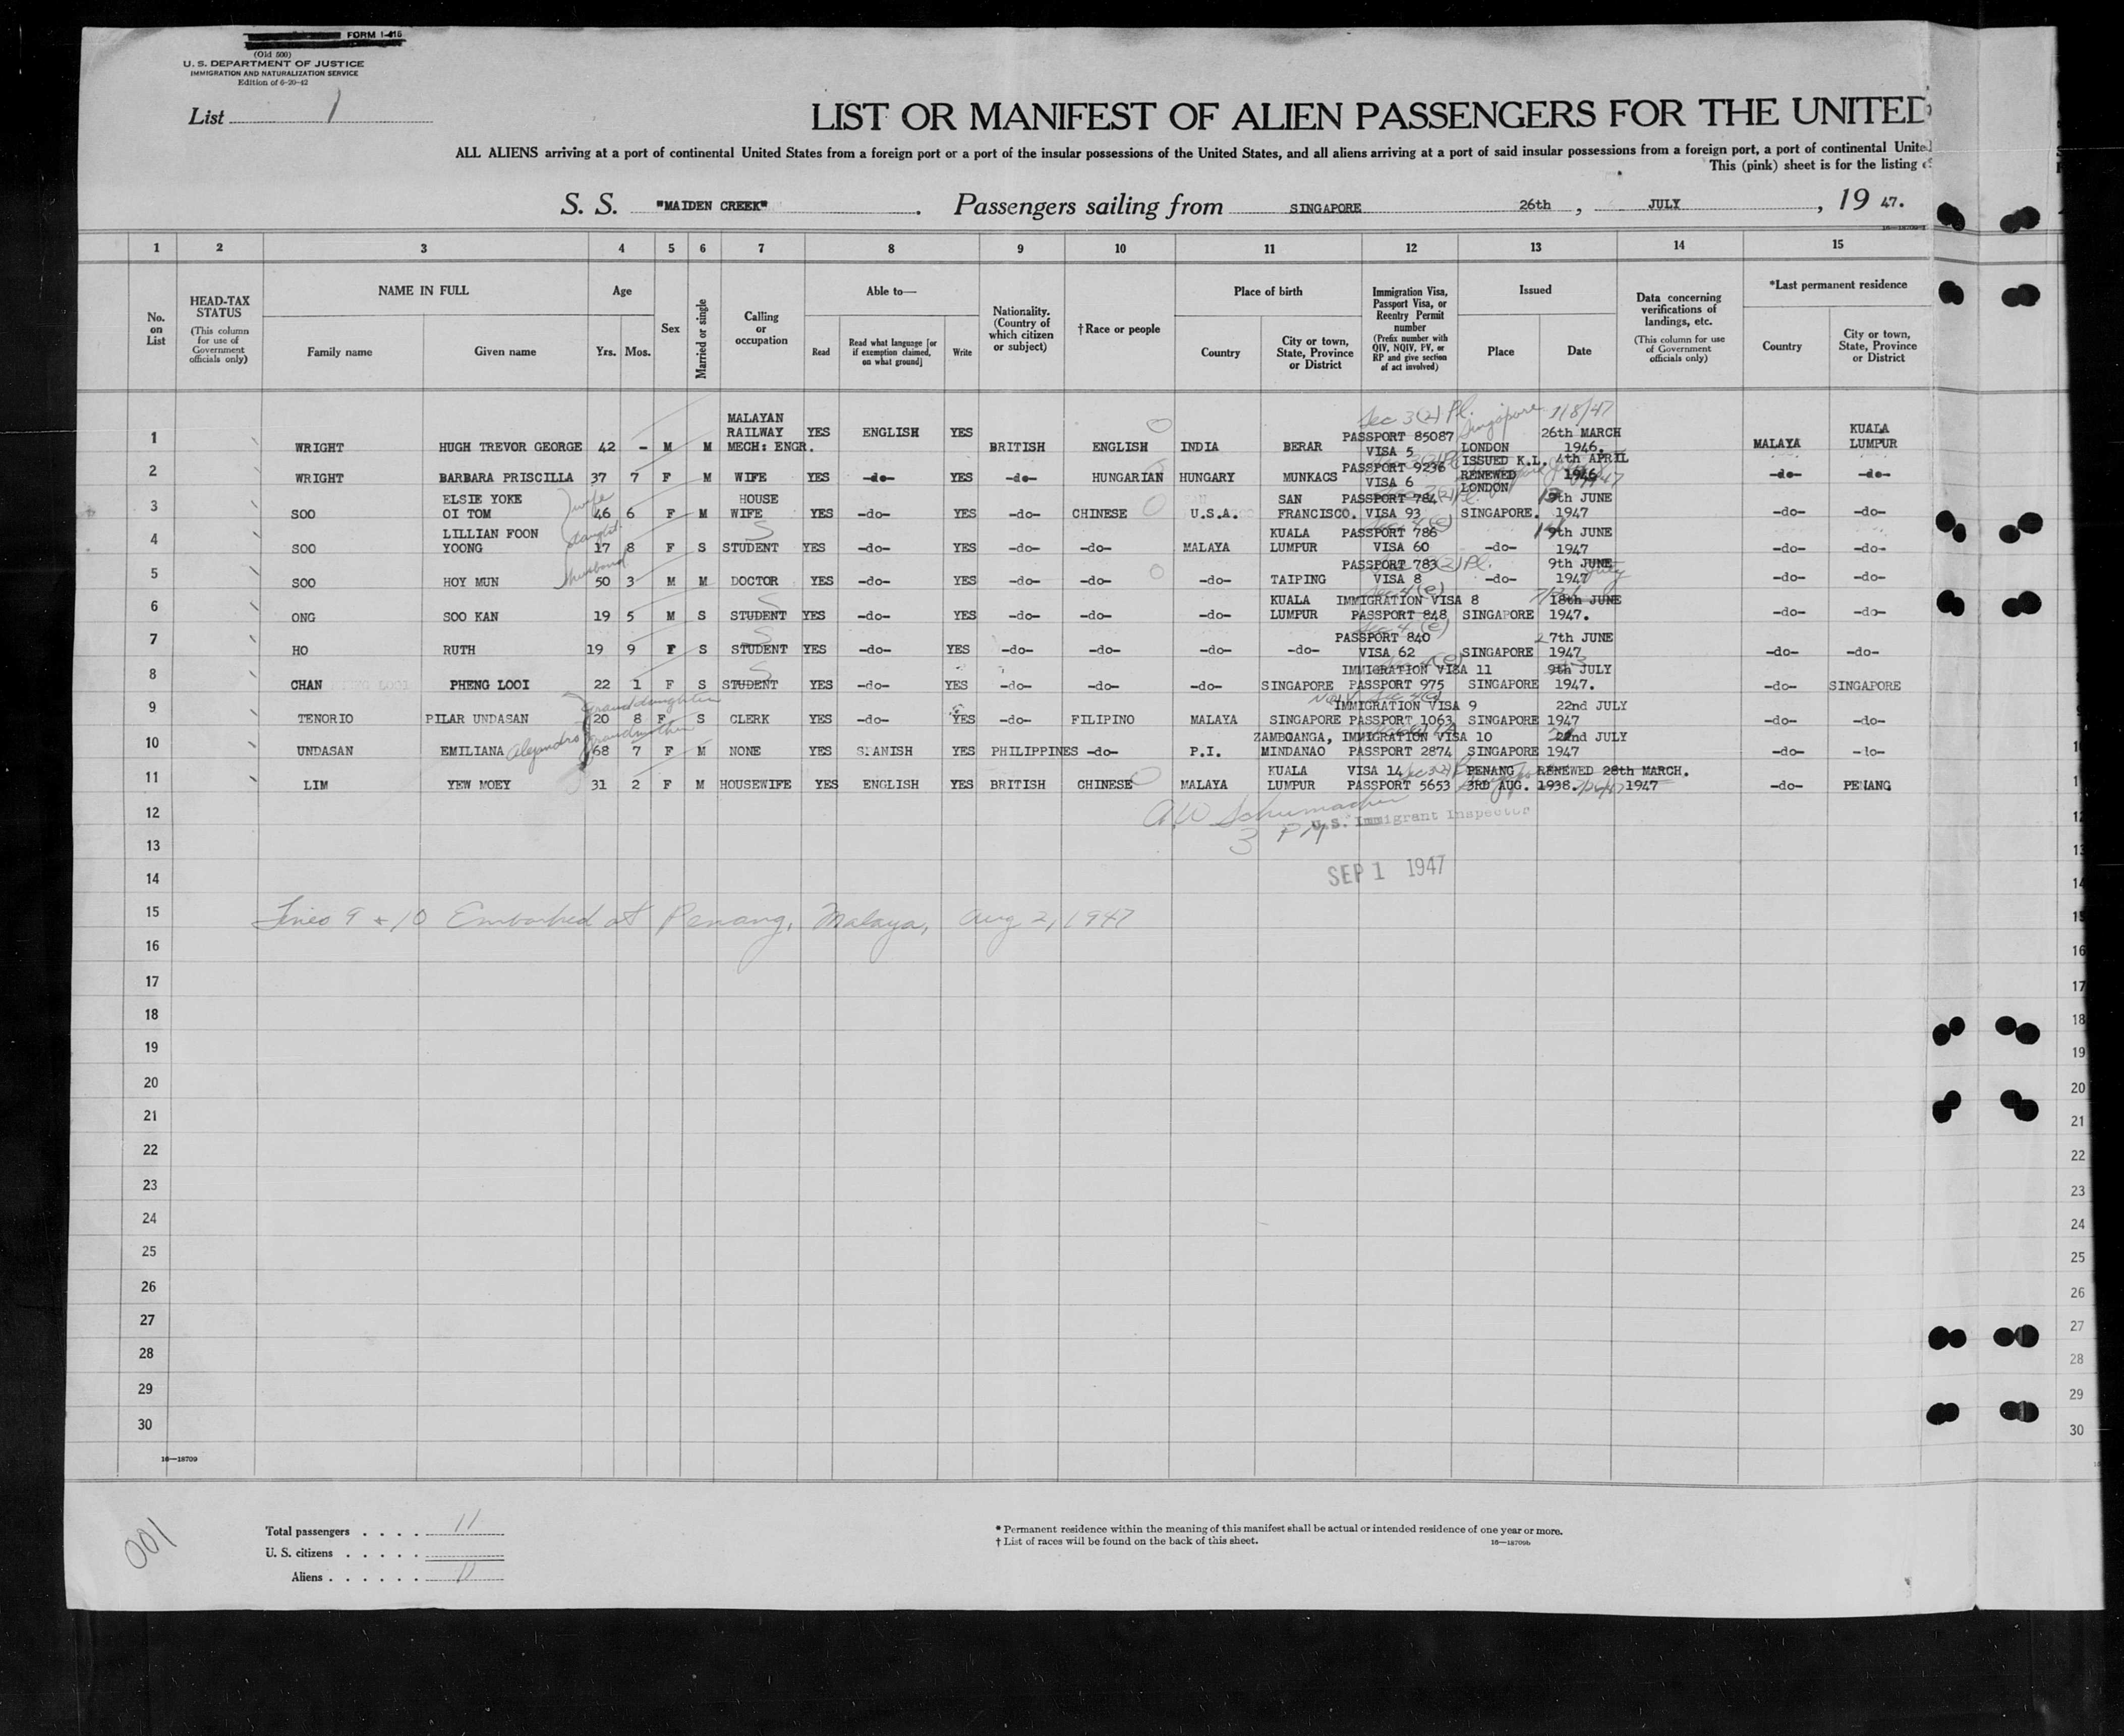 FORM I-415
(Old 500)
U. S. DEPARTMENT OF JUSTICE
IMMIGRATION AND NATURALIZATION SERVICE
Edition of 6-20-42
List 1
LIST OR MANIFEST OF ALIEN PASSENGERS FOR THE UNITED
ALL ALIENS arriving at a port of continental United States from a foreign port or a port of the insular possessions of the United States, and all aliens arriving at a port of said insular possessions from a foreign port, a port of continental United
This (pink) sheet is for the listing
S. S. "MAIDEN CREEK". Passengers sailing from SINGAPORE 26th, JULY, 19 47.
1 2 3 4 5 6 7 8 9 10 11 12 13 14 15
No. on List
HEAD-TAX STATUS
(This column for use of Government officials only)
NAME IN FULL
Family name
Given name
Age
Yrs. Mos.
Sex
Married or single
Calling or occupation
Able to—
Read
Read what language [or if exemption claimed, on what ground]
Write
Nationality. (Country of which citizen or subject)
†Race or people
Place of birth
Country
City or town, State, Province or District
Immigration Visa, Passport Visa, or Reentry Permit number
(Prefix number with QIV, NQIV, PV, or RP and give section of act involved)
Issued
Place
Date
Data concerning verifications of landings, etc.
(This column for use of Government officials only)
*Last permanent residence
Country
City or town, State, Province or District
Sec 3(2) Pl. Singapore 1/8/47
1 WRIGHT HUGH TREVOR GEORGE 42 - M M MALAYAN RAILWAY MECH: ENGR. YES ENGLISH YES BRITISH ENGLISH INDIA BERAR PASSPORT 85087 VISA 5 LONDON 26th MARCH 1946. MALAYA KUALA LUMPUR
2 WRIGHT BARBARA PRISCILLA 37 7 F M WIFE YES -do- YES -do- HUNGARIAN HUNGARY MUNKACS PASSPORT 9236 VISA 6 ISSUED K.L. RENEWED LONDON 4th APRIL 1946 -do- -do-
3 SOO ELSIE YOKE OI TOM wife 46 6 F M HOUSE WIFE YES -do- YES -do- CHINESE U.S.A. SAN FRANCISCO. PASSPORT 784 VISA 93 SINGAPORE. 9th JUNE 1947 -do- -do-
4 SOO LILLIAN FOON YOONG 17 8 F S STUDENT YES -do- YES -do- -do- MALAYA KUALA LUMPUR PASSPORT 786 VISA 60 -do- 9th JUNE 1947 -do- -do-
5 SOO HOY MUN husband 50 3 M M DOCTOR YES -do- YES -do- -do- -do- TAIPING PASSPORT 783 VISA 8 -do- 9th JUNE 1947 -do- -do-
6 ONG SOO KAN 19 5 M S STUDENT YES -do- YES -do- -do- -do- KUALA LUMPUR IMMIGRATION VISA 8 PASSPORT 848 SINGAPORE 18th JUNE 1947. -do- -do-
7 HO RUTH 19 9 F S STUDENT YES -do- YES -do- -do- -do- -do- PASSPORT 840 VISA 62 SINGAPORE 27th JUNE 1947 -do- -do-
8 CHAN PHENG LOOI 22 1 F S STUDENT YES -do- YES -do- -do- -do- SINGAPORE IMMIGRATION VISA 11 PASSPORT 975 SINGAPORE 9th JULY 1947. -do- SINGAPORE
9 TENORIO PILAR UNDASAN Granddaughter 20 8 F S CLERK YES -do- YES -do- FILIPINO MALAYA SINGAPORE IMMIGRATION VISA 9 PASSPORT 1063 SINGAPORE 22nd JULY 1947 -do- -do-
10 UNDASAN EMILIANA Alejandro Grandmother 68 7 F M NONE YES SPANISH YES PHILIPPINES -do- P.I. ZAMBOANGA, MINDANAO IMMIGRATION VISA 10 PASSPORT 2874 SINGAPORE 22nd JULY 1947 -do- -do-
11 LIM YEW MOEY 31 2 F M HOUSEWIFE YES ENGLISH YES BRITISH CHINESE MALAYA KUALA LUMPUR VISA 14 PASSPORT 5653 PENANG 3RD AUG. 1938. RENEWED 28th MARCH. 1947 -do- PENANG
12 A W Schumacher
U.S. Immigrant Inspector
13 3 PM
14 SEP 1 1947
15 Lines 9 & 10 Embarked at Penang, Malaya, Aug 2, 1947
16
17
18
19
20
21
22
23
24
25
26
27
28
29
30
16—18709
Total passengers . . . . 11
U. S. citizens . . . . .
Aliens . . . . . . 11
001
* Permanent residence within the meaning of this manifest shall be actual or intended residence of one year or more.
† List of races will be found on the back of this sheet.
16—18709b